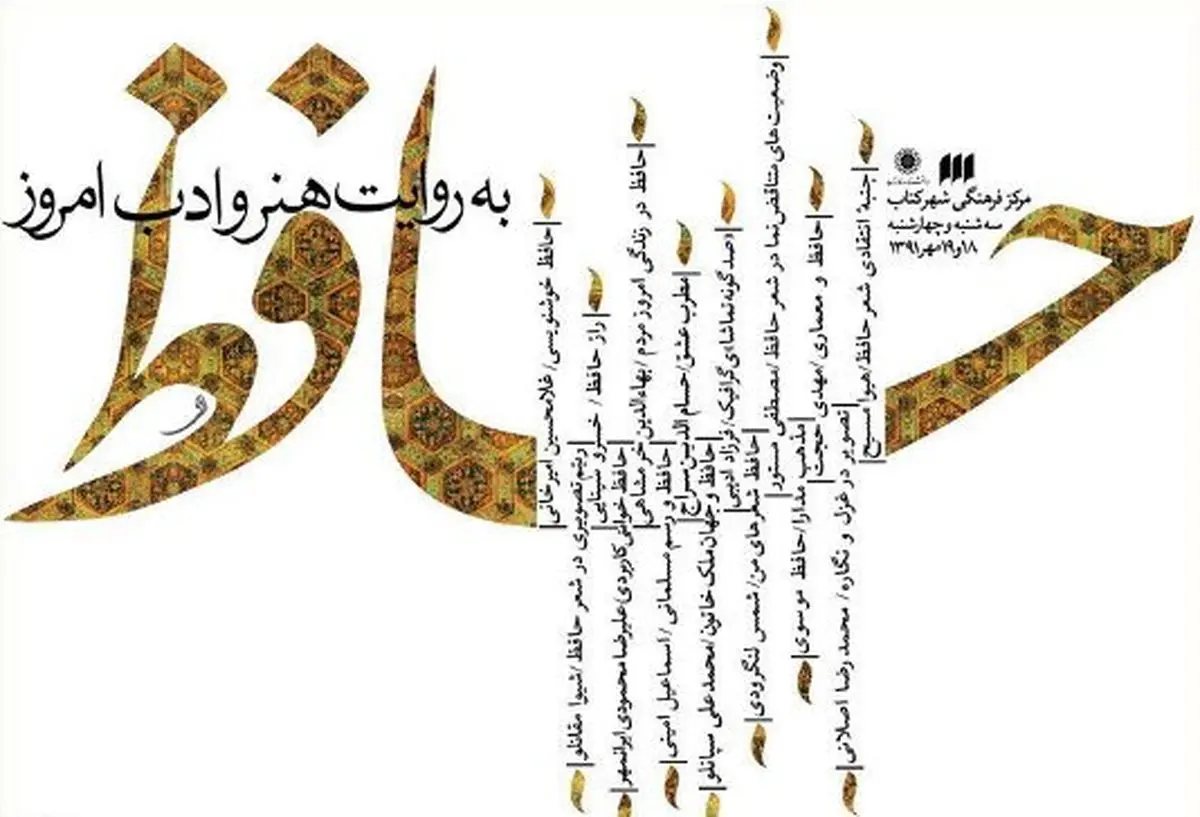 حافظ
به روایت هنر و ادب امروز
مرکز فرهنگی شهر کتاب
سه‌شنبه و چهارشنبه
۱۸ و ۱۹ مهر ۱۳۹۱
جنبهٔ انتقادی شعر حافظ/هیوا مسیح
تصویر در غزل و نگاره/ محمدرضا اصلانی
حافظ و معماری/مهدی حجت
مذهب مدارا/حافظ موسوی
وضعیت‌های متناقض‌نما در شعر حافظ/مصطفی مستور
حافظ شعرهای من/شمس لنگرودی
«صد گونه تماشا»ی گرافیک/فرزاد ادیبی
حافظ و جهان ملک خاتون/محمدعلی سپانلو
مطرب عشق/حسام الدین سراج
حافظ و رسم مسلمانی/اسماعیل امینی
حافظ در زندگی امروز مردم/بهاءالدین خرمشاهی
حافظ خوانی کاربردی/علیرضا محمودی ایرانمهر
راز حافظ/ خسرو سینایی
ریتم تصویری در شعر حافظ/شیوا مقانلو
حافظ خوشنویسی/غلامحسین امیرخانی